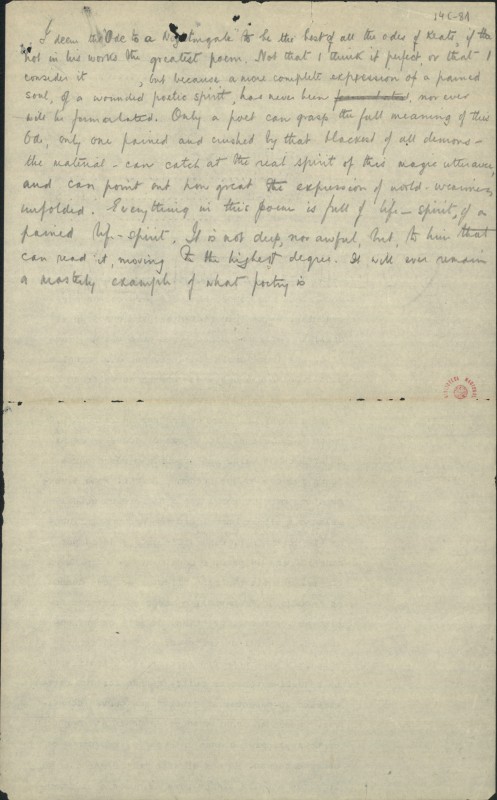 14C-81
I deem the Ode to a Nightingale to be the best of all the odes of Keats, if the
not in his works the greatest poem. Not that I think it perfect, or that I
consider it , but because a more complete expression of a pained
soul, of a wounded poetic spirit, has never been formulated, nor ever
will be formulated. Only a poet can grasp the full meaning of this
Ode, only one pained and crushed by that blackest of all demons –
the material – can catch at the real spirit of this magic utterance,
and can point out how great the expression of world-weariness
unfolded. Everything in this poem is full of life – spirit, of a
pained life-spirit. It is not deep, nor awful, but, to him that
can read it, moving to the highest degree. It will ever remain
a masterly example of what poetry is